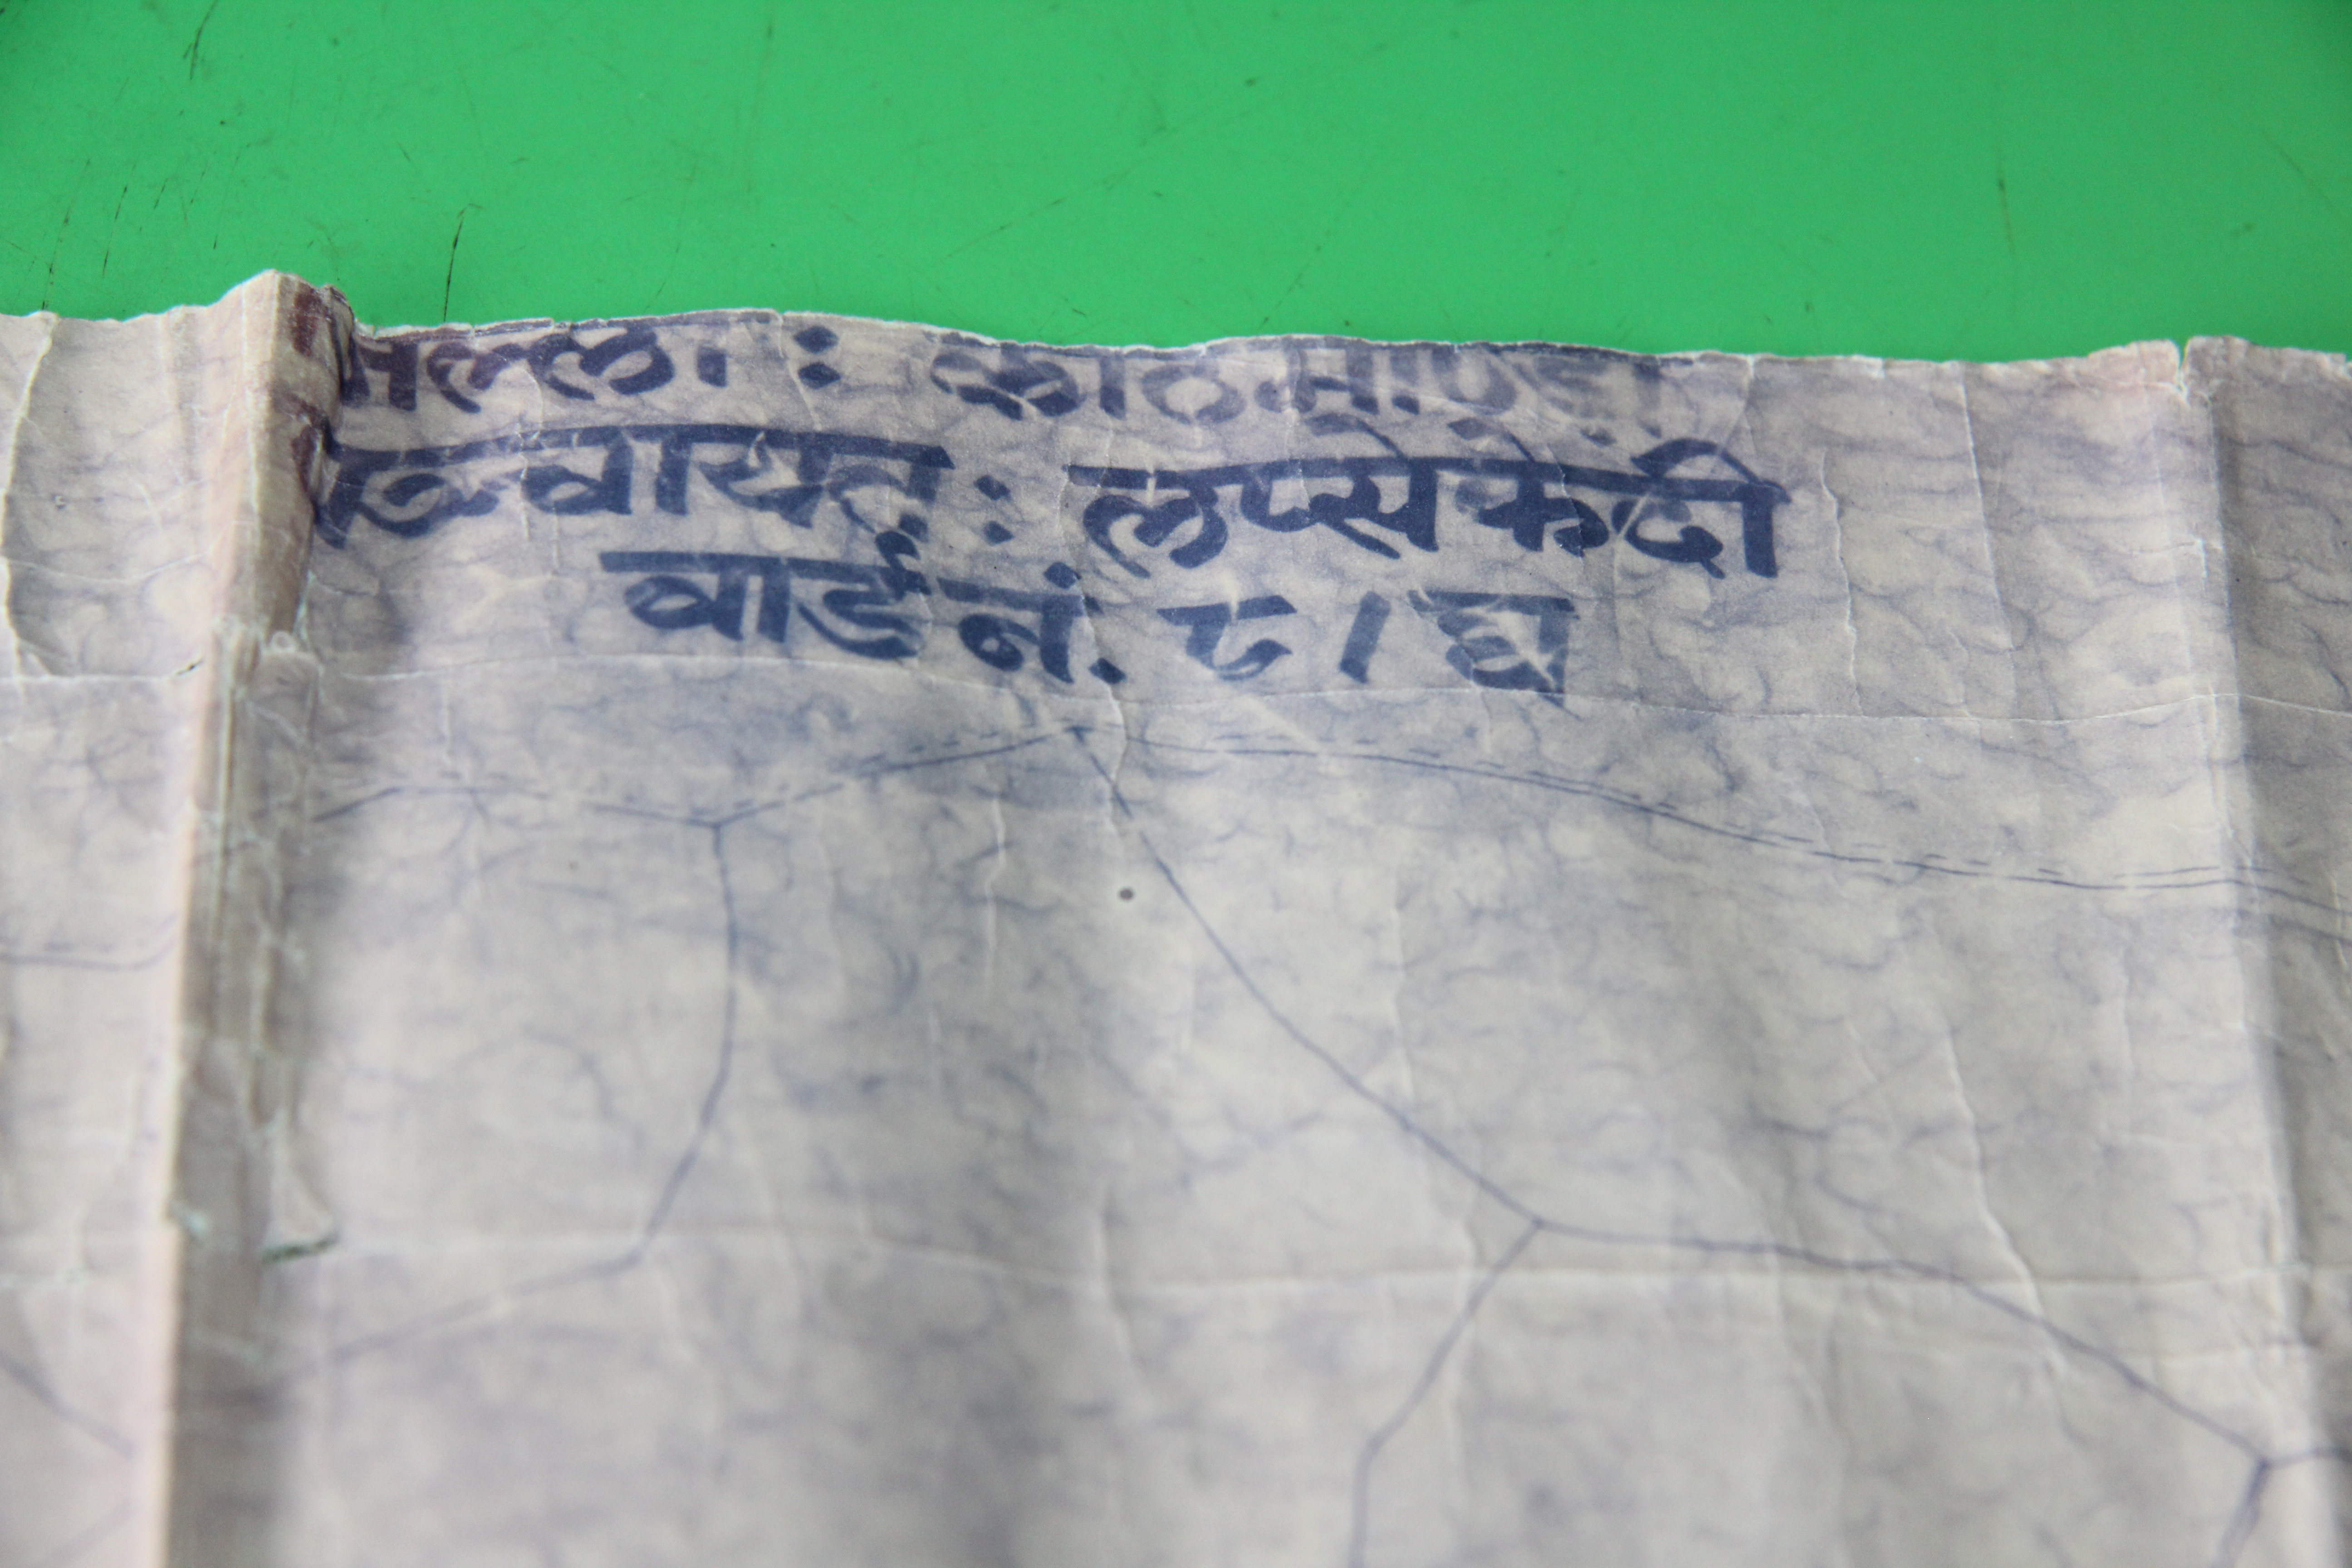 जिल्ला : काठमाण्डौ
पञ्चायत : लप्सेफेदी
वार्ड नं. ८ । घ